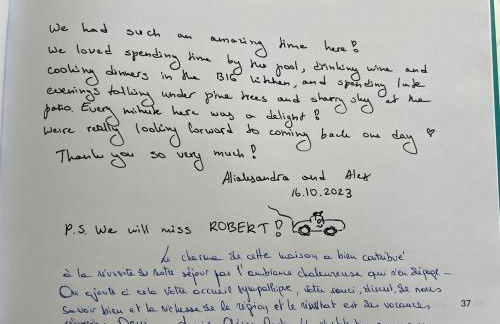 We had such an amazing time here!
We loved spending time by the pool, drinking wine and
cooking dinners in the BIG kitchen, and spending late
evenings talking under pine trees and starry sky at the
patio. Every minute here was a delight!
We're really looking forward to coming back one day ♥
Thank you so very much!
Aliaksandra and Alex
16.10.2023
P.S. We will miss ROBERT!
Le charme de cette maison a bien contribué
à la réussite de notre séjour par l'ambiance chaleureuse qui s'en dégage -
On ajoute à cela votre accueil sympathique, votre souci, discret, de nous
savoir bien et la richesse de la région et le résultat est des vacances
37